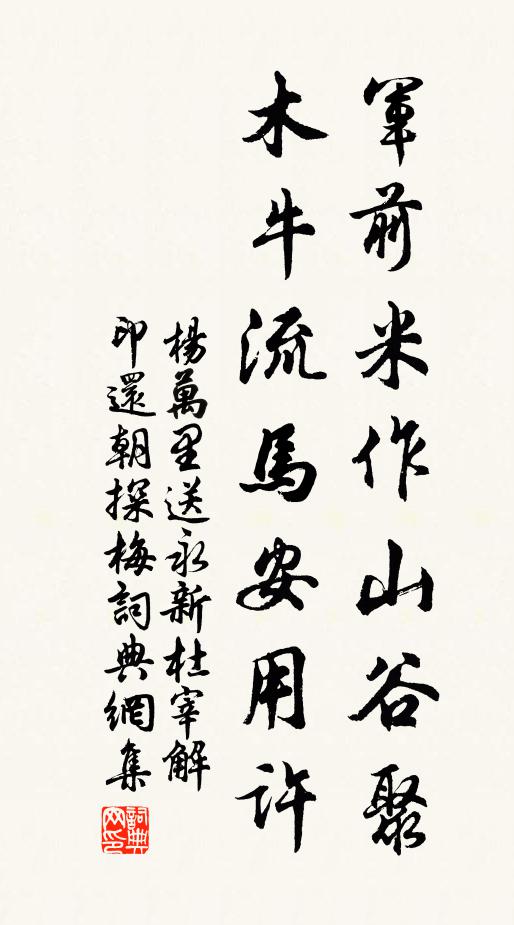 軍前米作山谷聚
木牛流馬安用許
楊萬里送永新杜宰解
印還朝探梅詞典網集
詞典網印